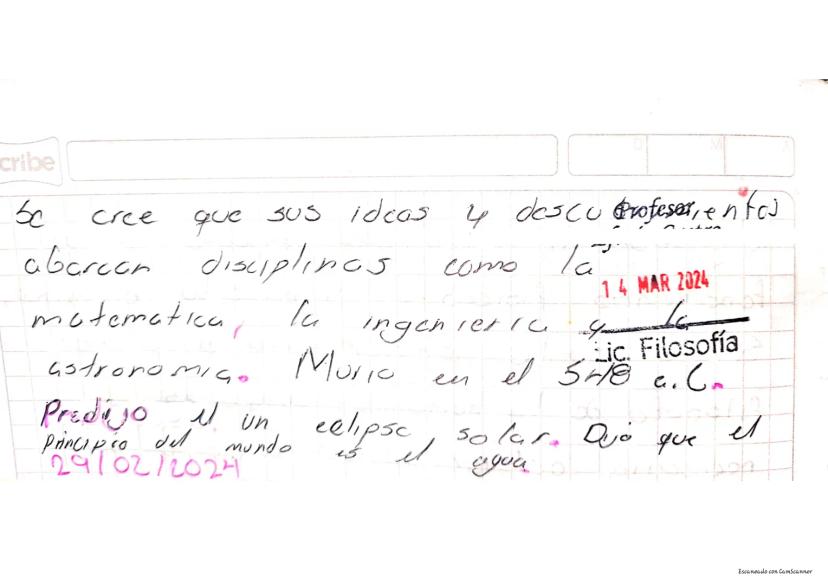 cribe
D M A
Se cree que sus ideas y descubrimientos
Profesor
abarcan disciplinas como la
14 MAR 2024
matematica, la ingenieria y la
Lic. Filosofía
astronomia. Murio en el 548 a.C.
Predijo el un eclipse solar. Dijo que el
Principio del mundo es el agua
29/02/2024
Escaneado con CamScanner